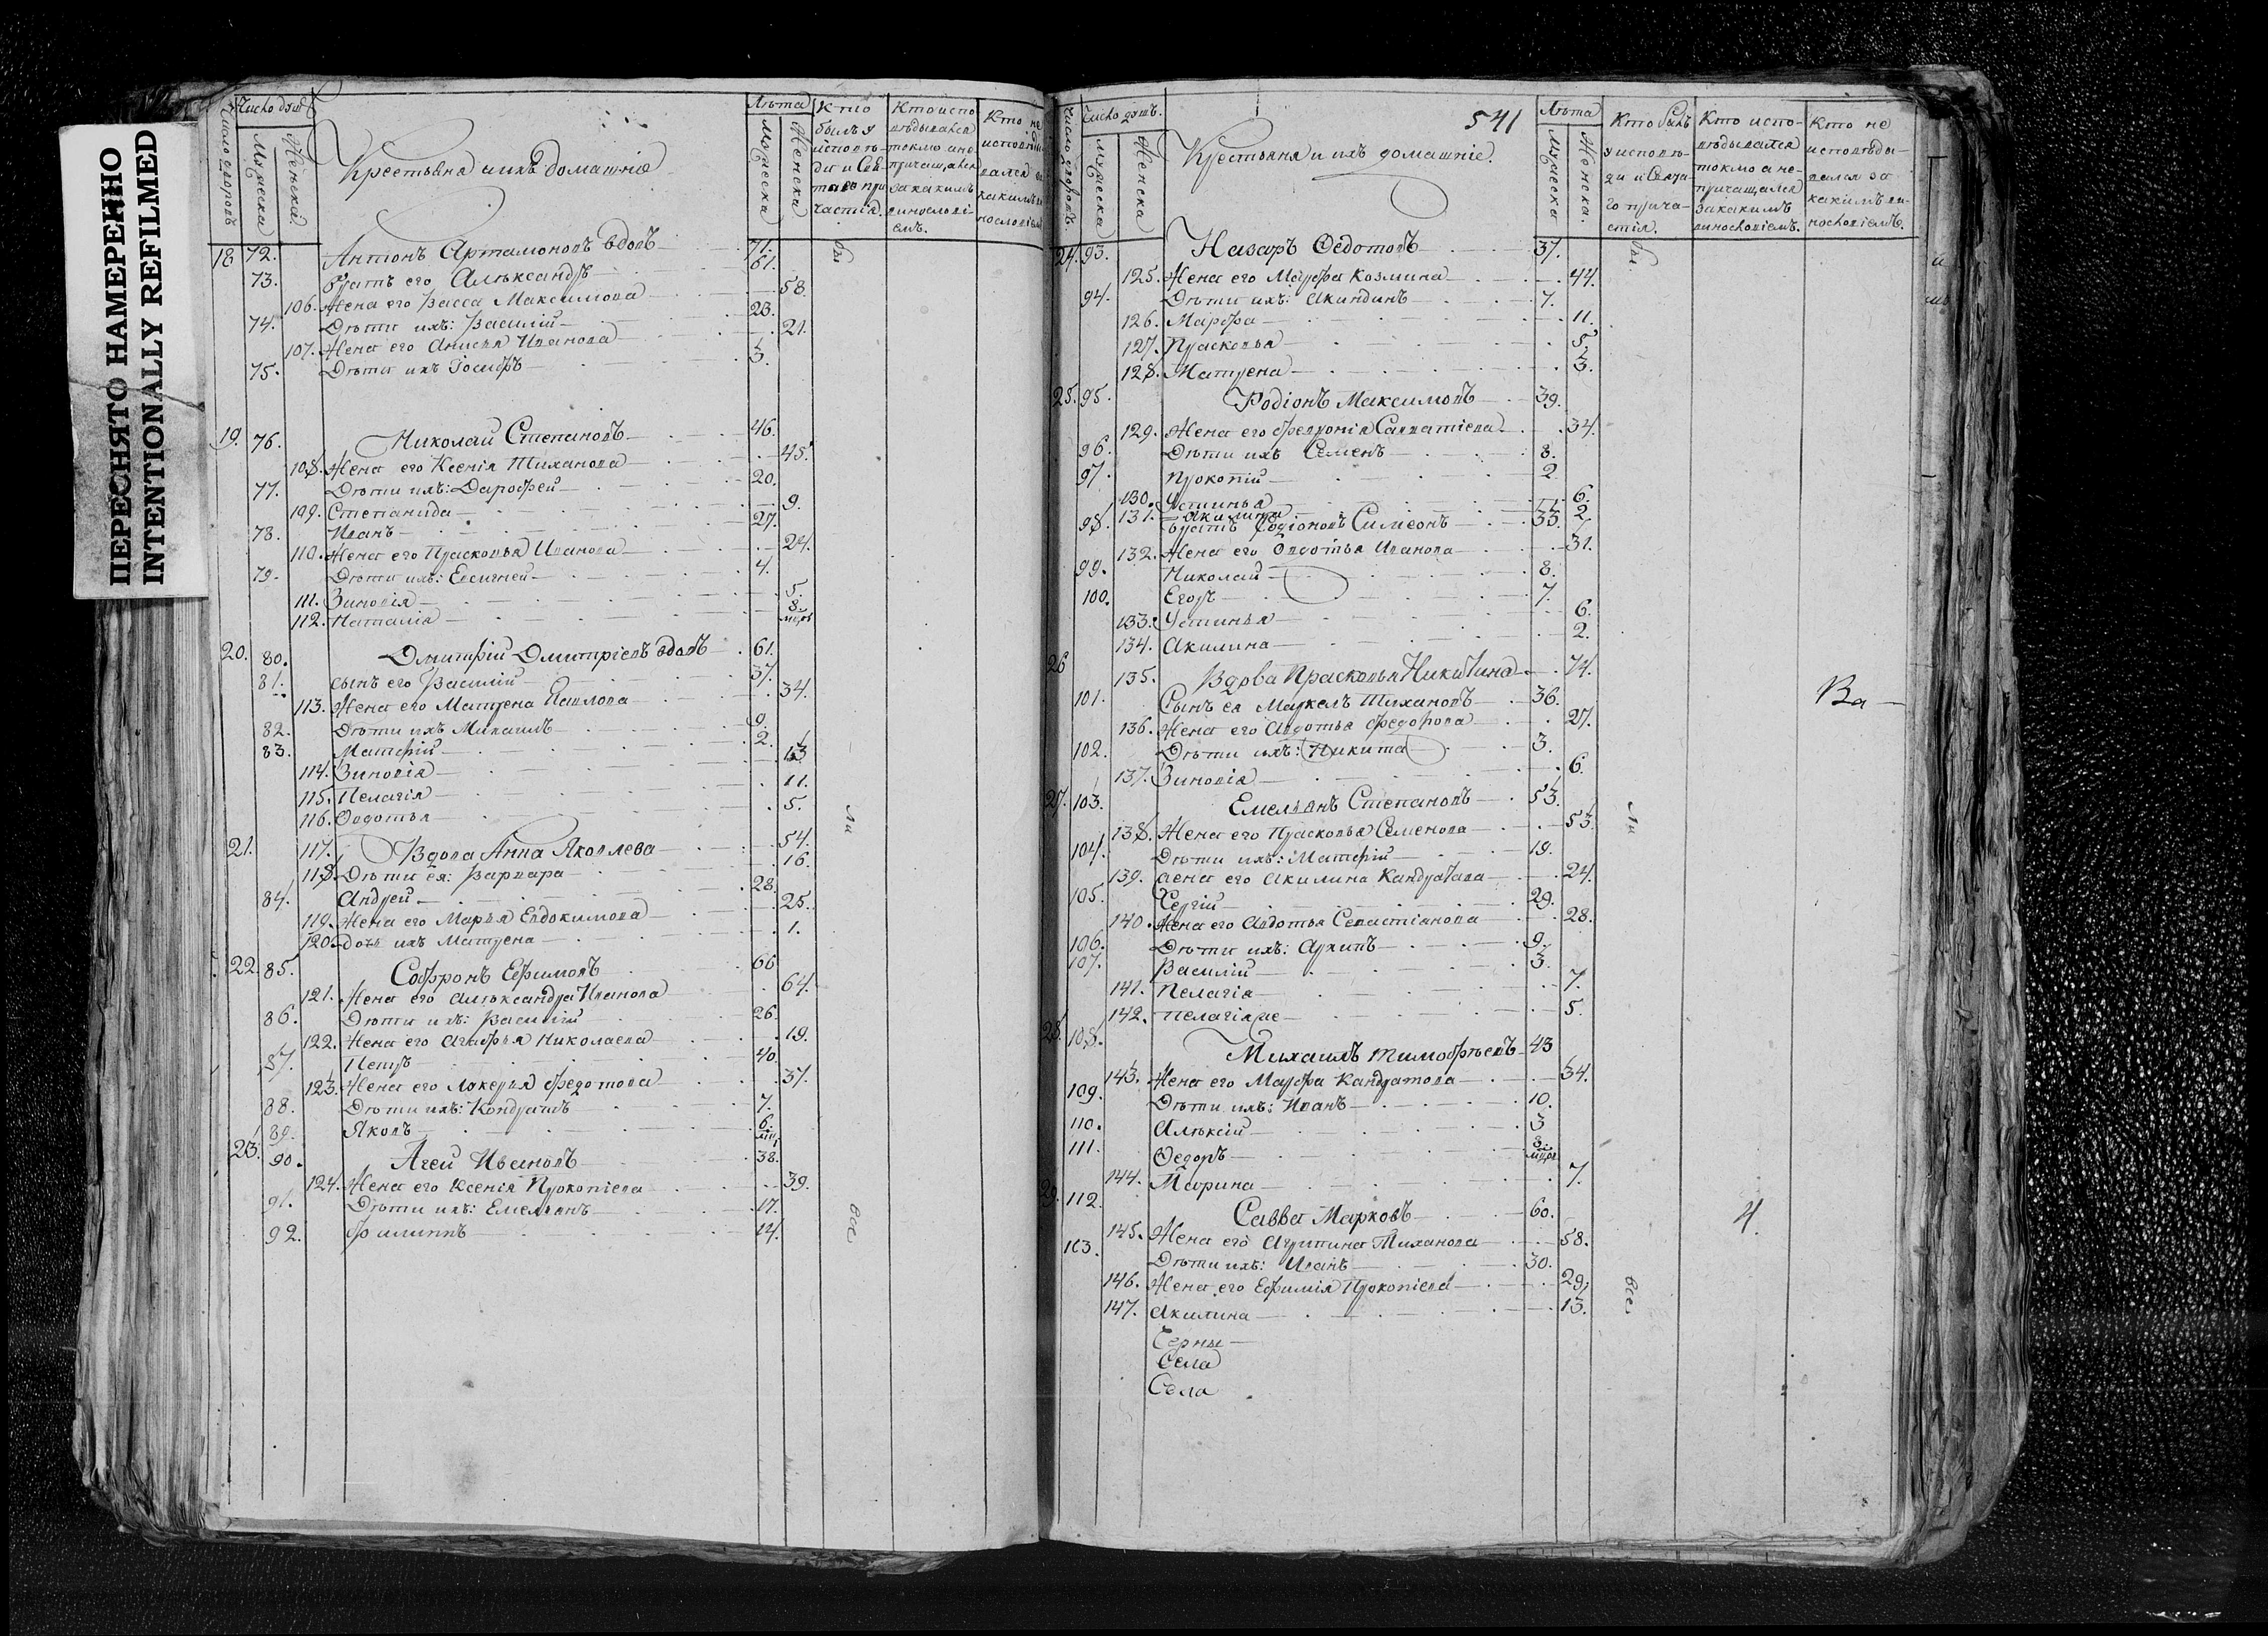 ПЕРЕСНЯТО НАМЕРЕННО
INTENTIONALLY REFILMED
Число дворовъ
Число душъ
Мужеска
Женска
Крестьяна и ихъ домашніе
Лѣта
Мужеска
Женска
Кто былъ у исповѣди и Святаго причастія.
Кто исповѣдывался токмо а не причащался за какимъ винословіемъ.
Кто не исповѣдывался за какимъ винословіем
18 72. Антонъ Артамоновъ вдовъ 71.
73. братъ его Алѣксандръ 61.
106. Жена его Васса Максимова 58.
74. Дѣти ихъ: Василій 23.
107. Жена его Анисья Иванова 21.
75. Дѣти ихъ Іосифъ 3.
19. 76. Николай Степановъ 46.
108. Жена его Ксенія Тиханова 45.
77. Дѣти ихъ: Дарофей 20.
109. Степанида 9.
78. Иванъ 27.
110. Жена его Прасковья Иванова 24.
79. Дѣти ихъ: Евсигней 4.
111. Зиновія 5.
112. Наталія 8.
20. 80. Дмитрій Дмитріевъ вдовъ 61.
81. сынъ его Василій 37.
113. Жена его Матрена Павлова 34.
82. Дѣти ихъ Михаилъ 9.
83. Матфій 2.
114. Зиновія 13
115. Пелагія 11.
116. Овдотья 5.
21. 117. Вдова Анна Яковлева 54.
118. Дѣти ея: Варвара 16.
84. Андрей 28.
119. Жена его Марья Евдокимова 25.
120. дочь ихъ Матрена 1.
22. 85. Софронъ Ефимовъ 66
121. Жена его Алѣксандра Иванова 64.
86. Дѣти ихъ: Василій 26.
122. Жена его Агафья Николаева 19.
87. Петръ 40.
123. Жена его Лукерья Федотова 37.
88. Дѣти ихъ: Кондратъ 7.
89. Яковъ 6.
23. 90. Агей Ивановъ 38.
124. Жена его Ксенія Прокопіева 39.
91. Дѣти ихъ: Емельянъ 17.
92. Филиппъ 14.
бы
ли
все
541
Число дворовъ.
Число душъ.
Мужеска
Женска
Крестьяня и ихъ домашніе.
Лѣта
Мужеска
Женска.
Кто былъ у исповѣди и Святаго причастія.
Кто исповѣдывался токмо а не причащался за какимъ винословіемъ.
Кто не исповѣдывался за какимъ винословіемъ.
24. 93. Назаръ Ѳедотовъ 37.
125. Жена его Марфа Козмина 44.
94. Дѣти ихъ: Акиндинъ 7.
126. Марфа 11.
127. Прасковья 5.
128. Матрена 3.
25. 95. Родіонъ Максимовъ 39.
129. Жена его Феврония Савватіева 34.
96. Дѣти ихъ Семенъ 8.
97. Прокопій 2
130. Устинья 6.
131. Акилина 2
98. братъ Родіоновъ Симеонъ 33.
132. Жена его Овдотья Иванова 31.
99. Николай 8.
100. Егоръ 7.
133. Устинья 6.
134. Акилина 2.
26 135. Вдова Прасковья Никитина 74.
101. Сынъ ея Маркелъ Тихановъ 36.
136. Жена его Авдотья Федорова 27.
102. Дѣти ихъ: Никита 3.
137. Зиновія 6.
27. 103. Емельянъ Степановъ 53.
138. Жена его Прасковья Семенова 53.
104. Дѣти ихъ: Матфій 19.
139. жена его Акилина Кандратава 24.
105. Сергій 29.
140. Жена его Авдотья Севастіанова 28.
106. Дѣти ихъ: Архипъ 9.
107. Василій 3.
141. Пелагія 7.
142. Пелагія же 5.
28. 108. Михаилъ Тимофѣевъ 43
143. Жена его Марфа Кандратова 34.
109. Дѣти ихъ: Иванъ 10.
110. Алѣксій 3
111. Ѳедоръ 8.
144. Марина 7.
29. 112. Савва Марковъ 60.
145. Жена его Агрипина Тиханова 58.
113. Дѣти ихъ: Иванъ 30.
146. Жена его Ефимія Прокопіева 29.
147. Акилина 13.
Черные
Села
Села
бы.
ли
все.
Ва